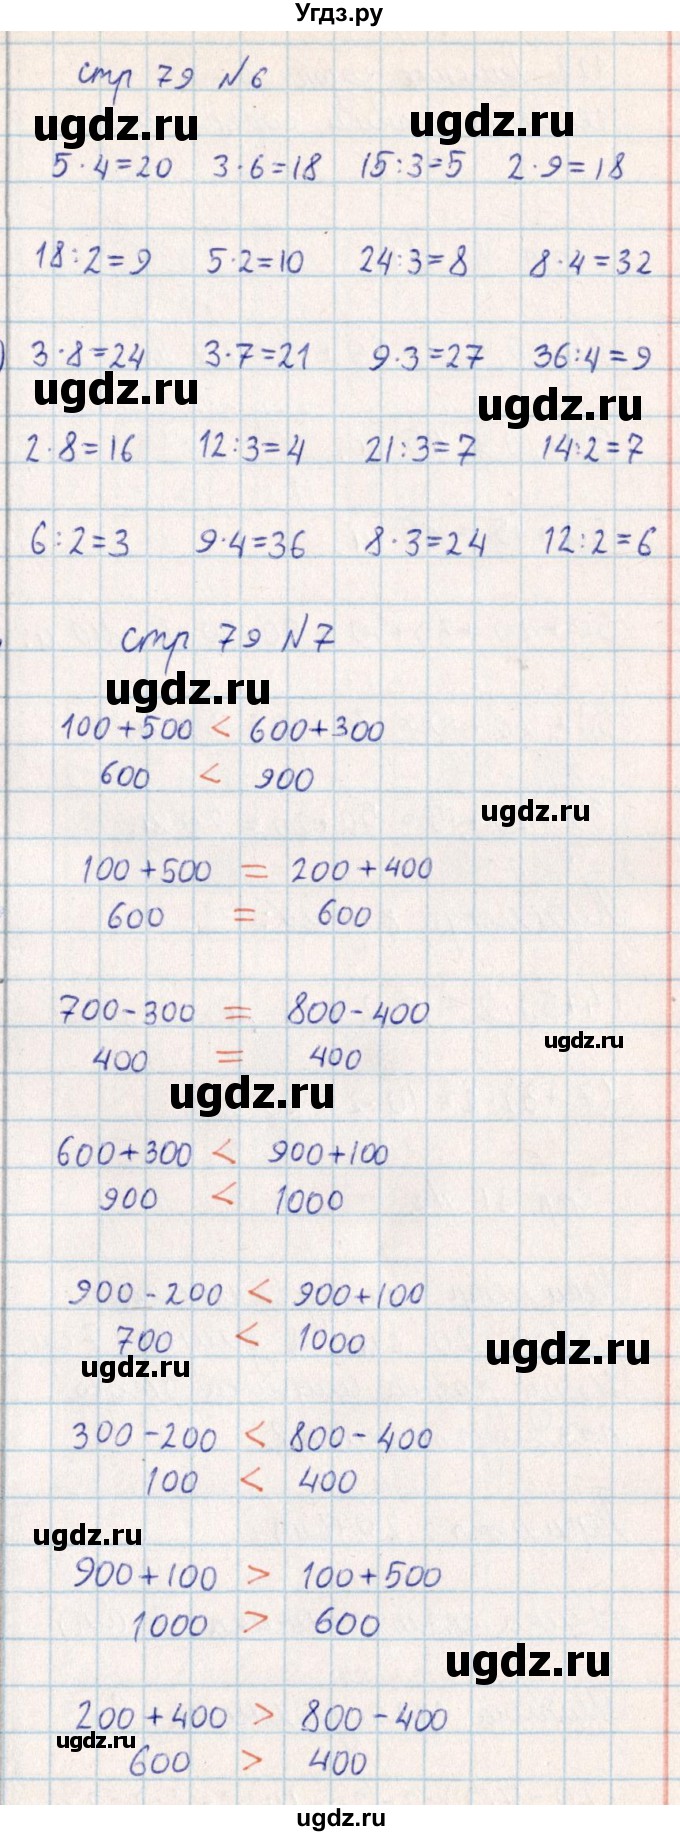 Угдз.ру
стр 79 №6
ugdz.ru ugdz.ru
5·4=20 3·6=18 15:3=5 2·9=18
18:2=9 5·2=10 24:3=8 8·4=32
) 3·8=24 3·7=21 9·3=27 36:4=9
ugdz.ru ugdz.ru
2·8=16 12:3=4 21:3=7 14:2=7
6:2=3 9·4=36 8·3=24 12:2=6
стр 79 №7
ugdz.ru
100+500 < 600+300
600 < 900
ugdz.ru
100+500 = 200+400
600 = 600
700-300 = 800-400
ugdz.ru
400 = 400
ugdz.ru
600+300 < 900+100
900 < 1000
900-200 < 900+100
700 < 1000
ugdz.ru
ugdz.ru
300-200 < 800-400
100 < 400
ugdz.ru
900+100 > 100+500
1000 > 600
ugdz.ru
200+400 > 800-400
ugdz.ru
600 > 400
ugdz.ru